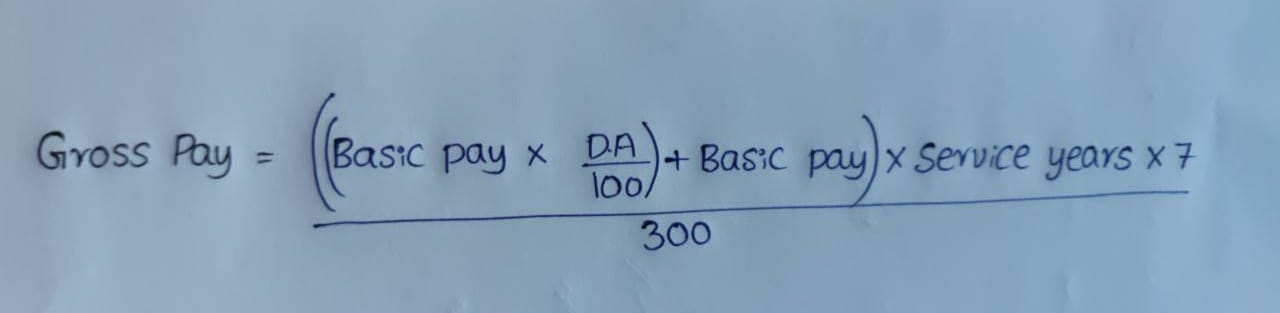 Gross Pay = ((Basic pay x D.A/100) + Basic pay) x Service years x 7
300